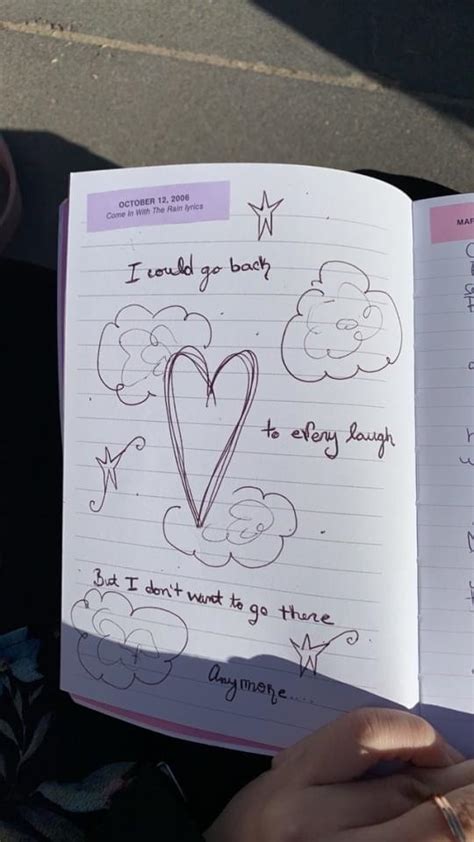 OCTOBER 12, 2006
Come In With The Rain lyrics
I could go back
to every laugh
But I don't want to go there
anymore....
MAR